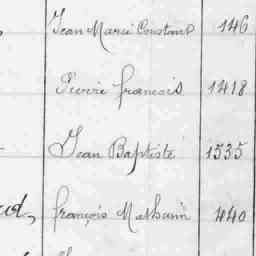 Jean Marie Constant 146
Pierre françois 1418
Jean Baptiste 1535
françois Mathurin 440